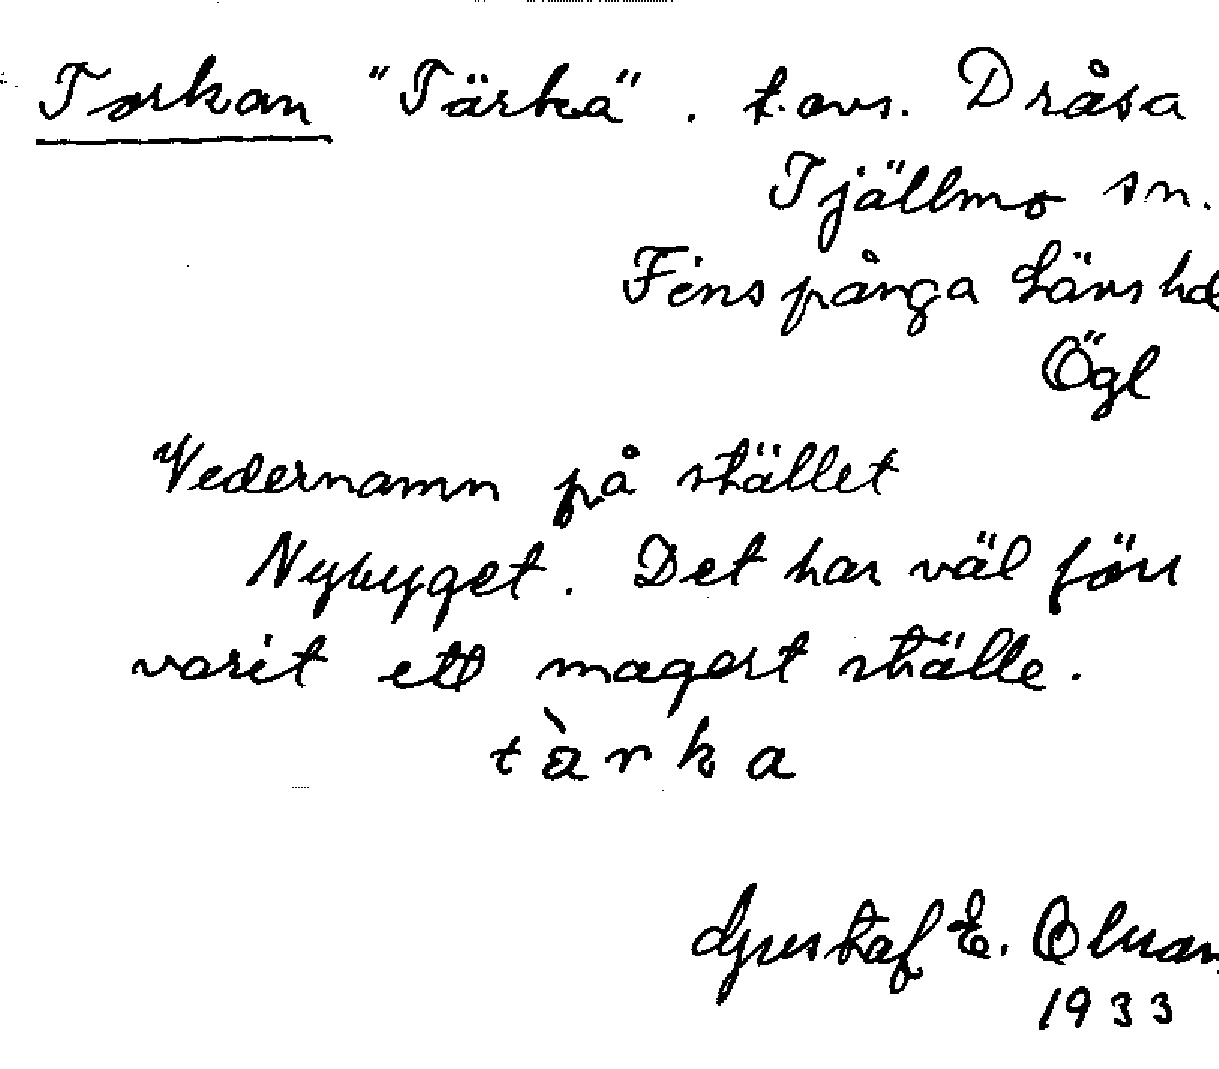 Torkan "Tärka". t. avs. Dråsa
Tjällmo sn.
Finspånga Läns hd
Ögl
Vedernamn på stället
Nybyget. Det har väl förr
varit ett magert ställe.
tàrka
Gustaf E. Olsson
1933